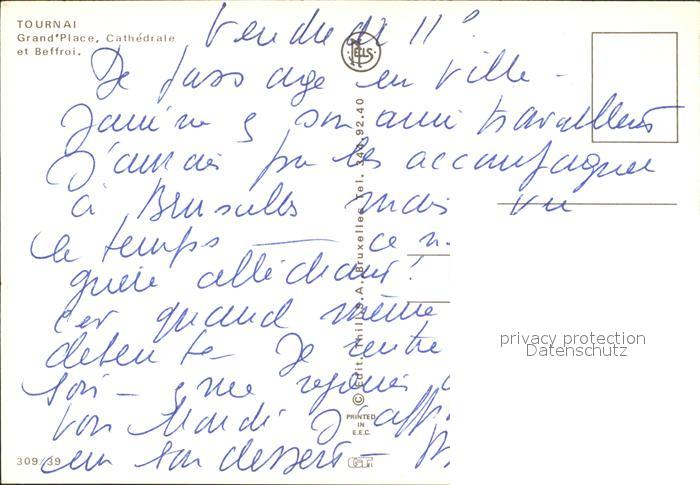 TOURNAI
Grand'Place, Cathédrale
et Beffroi.
Vendredi 11°
De passage en ville -
Janine & son ami travaillent
J'aurais pu les accompagner
à Bruxelles mais vu
le temps — ce n'
guère alléchant!
c'er quand même
détente - Je rentre
soir - & me réjouis
von Mardi J'
un son dessert -
ELS
© Edit. Thill S.A. Bruxelles Tel. 340.92.40
PRINTED
IN
E.E.C.
309/39
privacy protection
Datenschutz